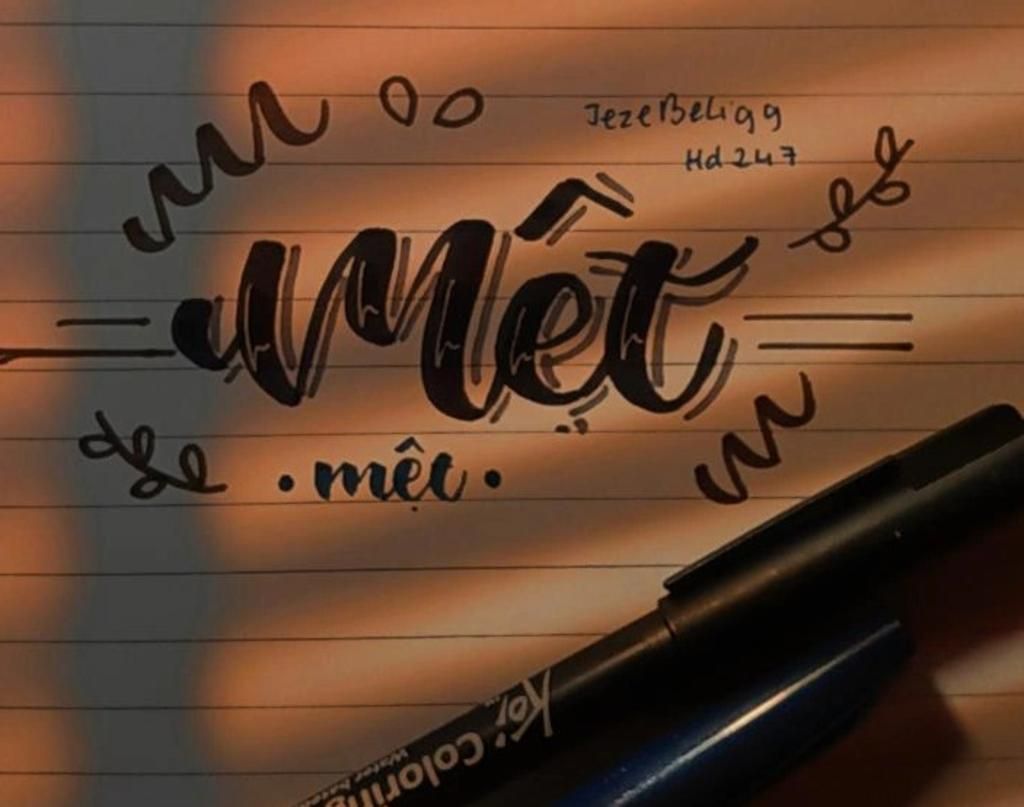 JezeBeligg
Hd247
Mệt
• mệt •
Koi Coloring
Water